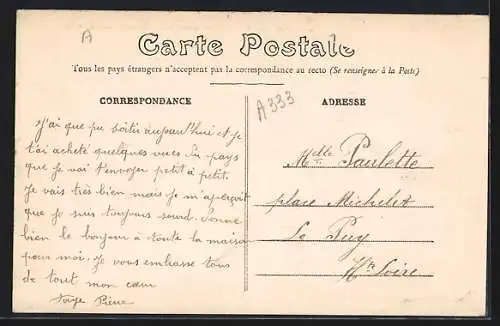 A
Carte Postale
Tous les pays étrangers n'acceptent pas la correspondance au recto (Se renseigner à la Poste)
CORRESPONDANCE
A333
ADRESSE
J'ai que pu sortir aujourd'hui et je
t'ai acheté quelques vues du pays
que je vai t'envoyer petit à petit.
Je vais très bien mais je m'aperçoit
que je suis toujours sourd. Donne
bien le bonjour à toute la maison
pour moi. Je vous embrasse tous
de tout mon cœur
Pierre
Melle Paulette
place Michelet
Le Puy
Hte Loire